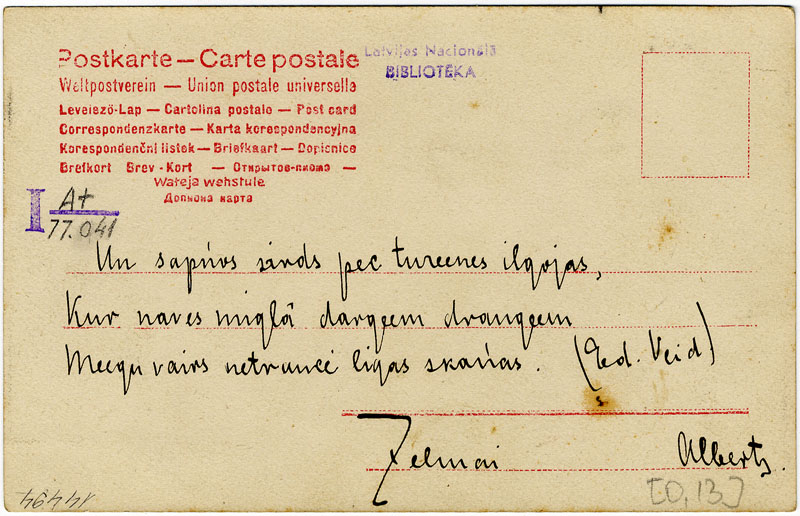 Postkarte — Carte postale
Weltpostverein — Union postale universelle
Levelező-Lap — Cartolina postale — Post card
Correspondenzkarte — Karta korespondencyjna
Korespondenční listek — Briefkaart — Dopisnice
Brefkort Brev-Kort — Открытое-письмо —
Wateja wehstule
Дописна карта
Latvijas Nacionālā
BIBLIOTĒKA
I A+
77.041
Un sapņos sirds pec tureenes ilgojas,
Kur naves miglā dargeem draugeem
Meegu vairs netraucē ligas skaņas. (Ed. Veid)
Zelmai Alberts.
14494 [0,13]